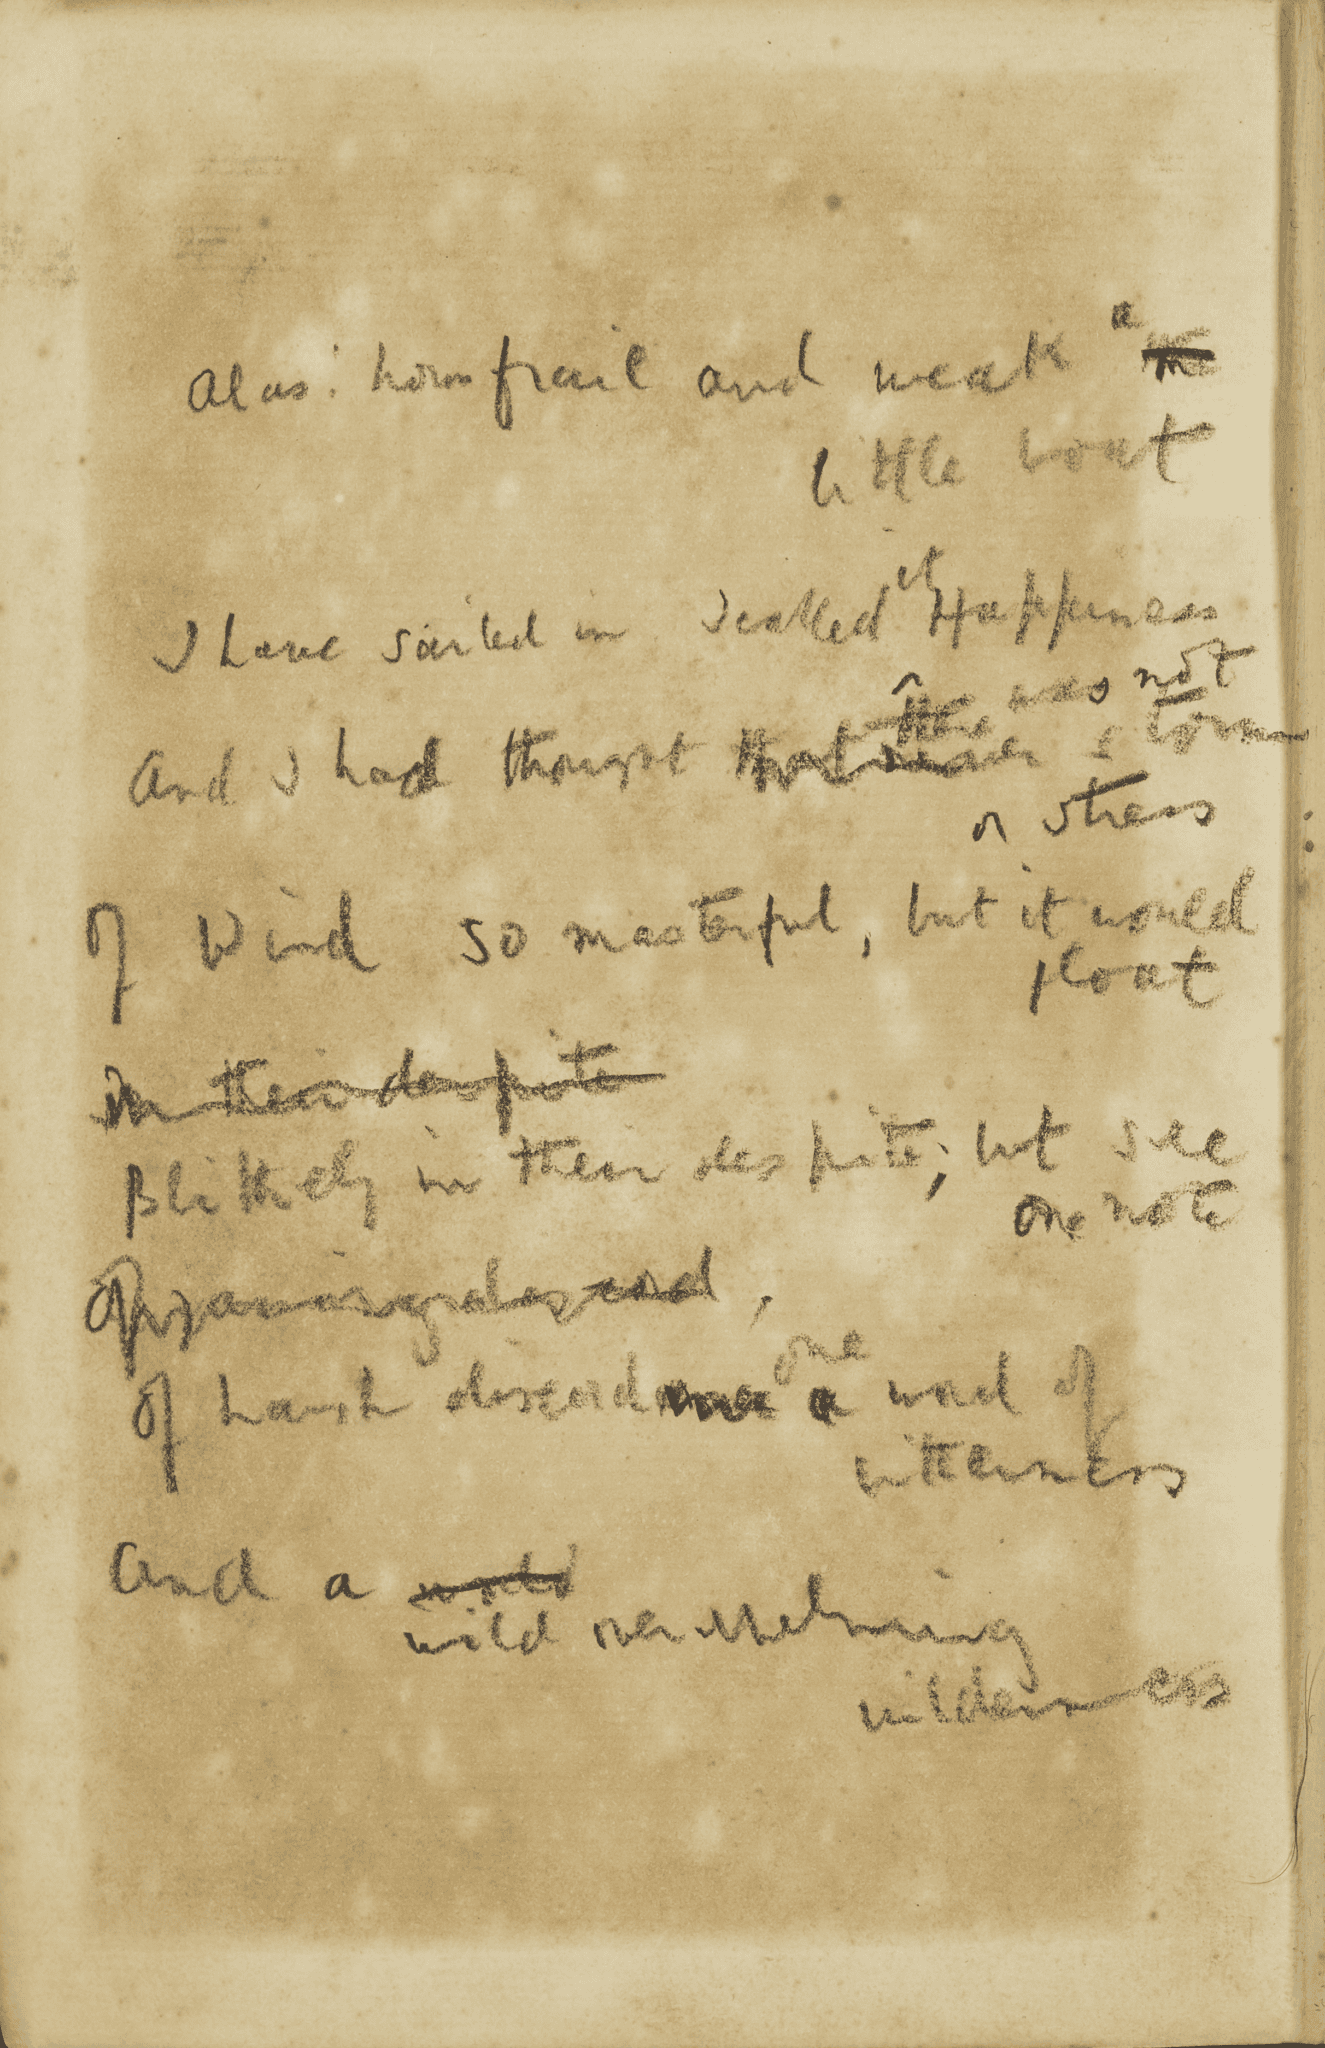 Alas! how frail and weak a the
little boat
I have sailed in. I called it Happiness
there was not
And I had thought that never storm
or stress
Of Wind so masterful, but it would
float
In their despite
Blithely in their despite; but see
one note
Of jarring discord,
one
Of harsh discord a word of
bitterness
And a world
wild overwhelming
wilderness